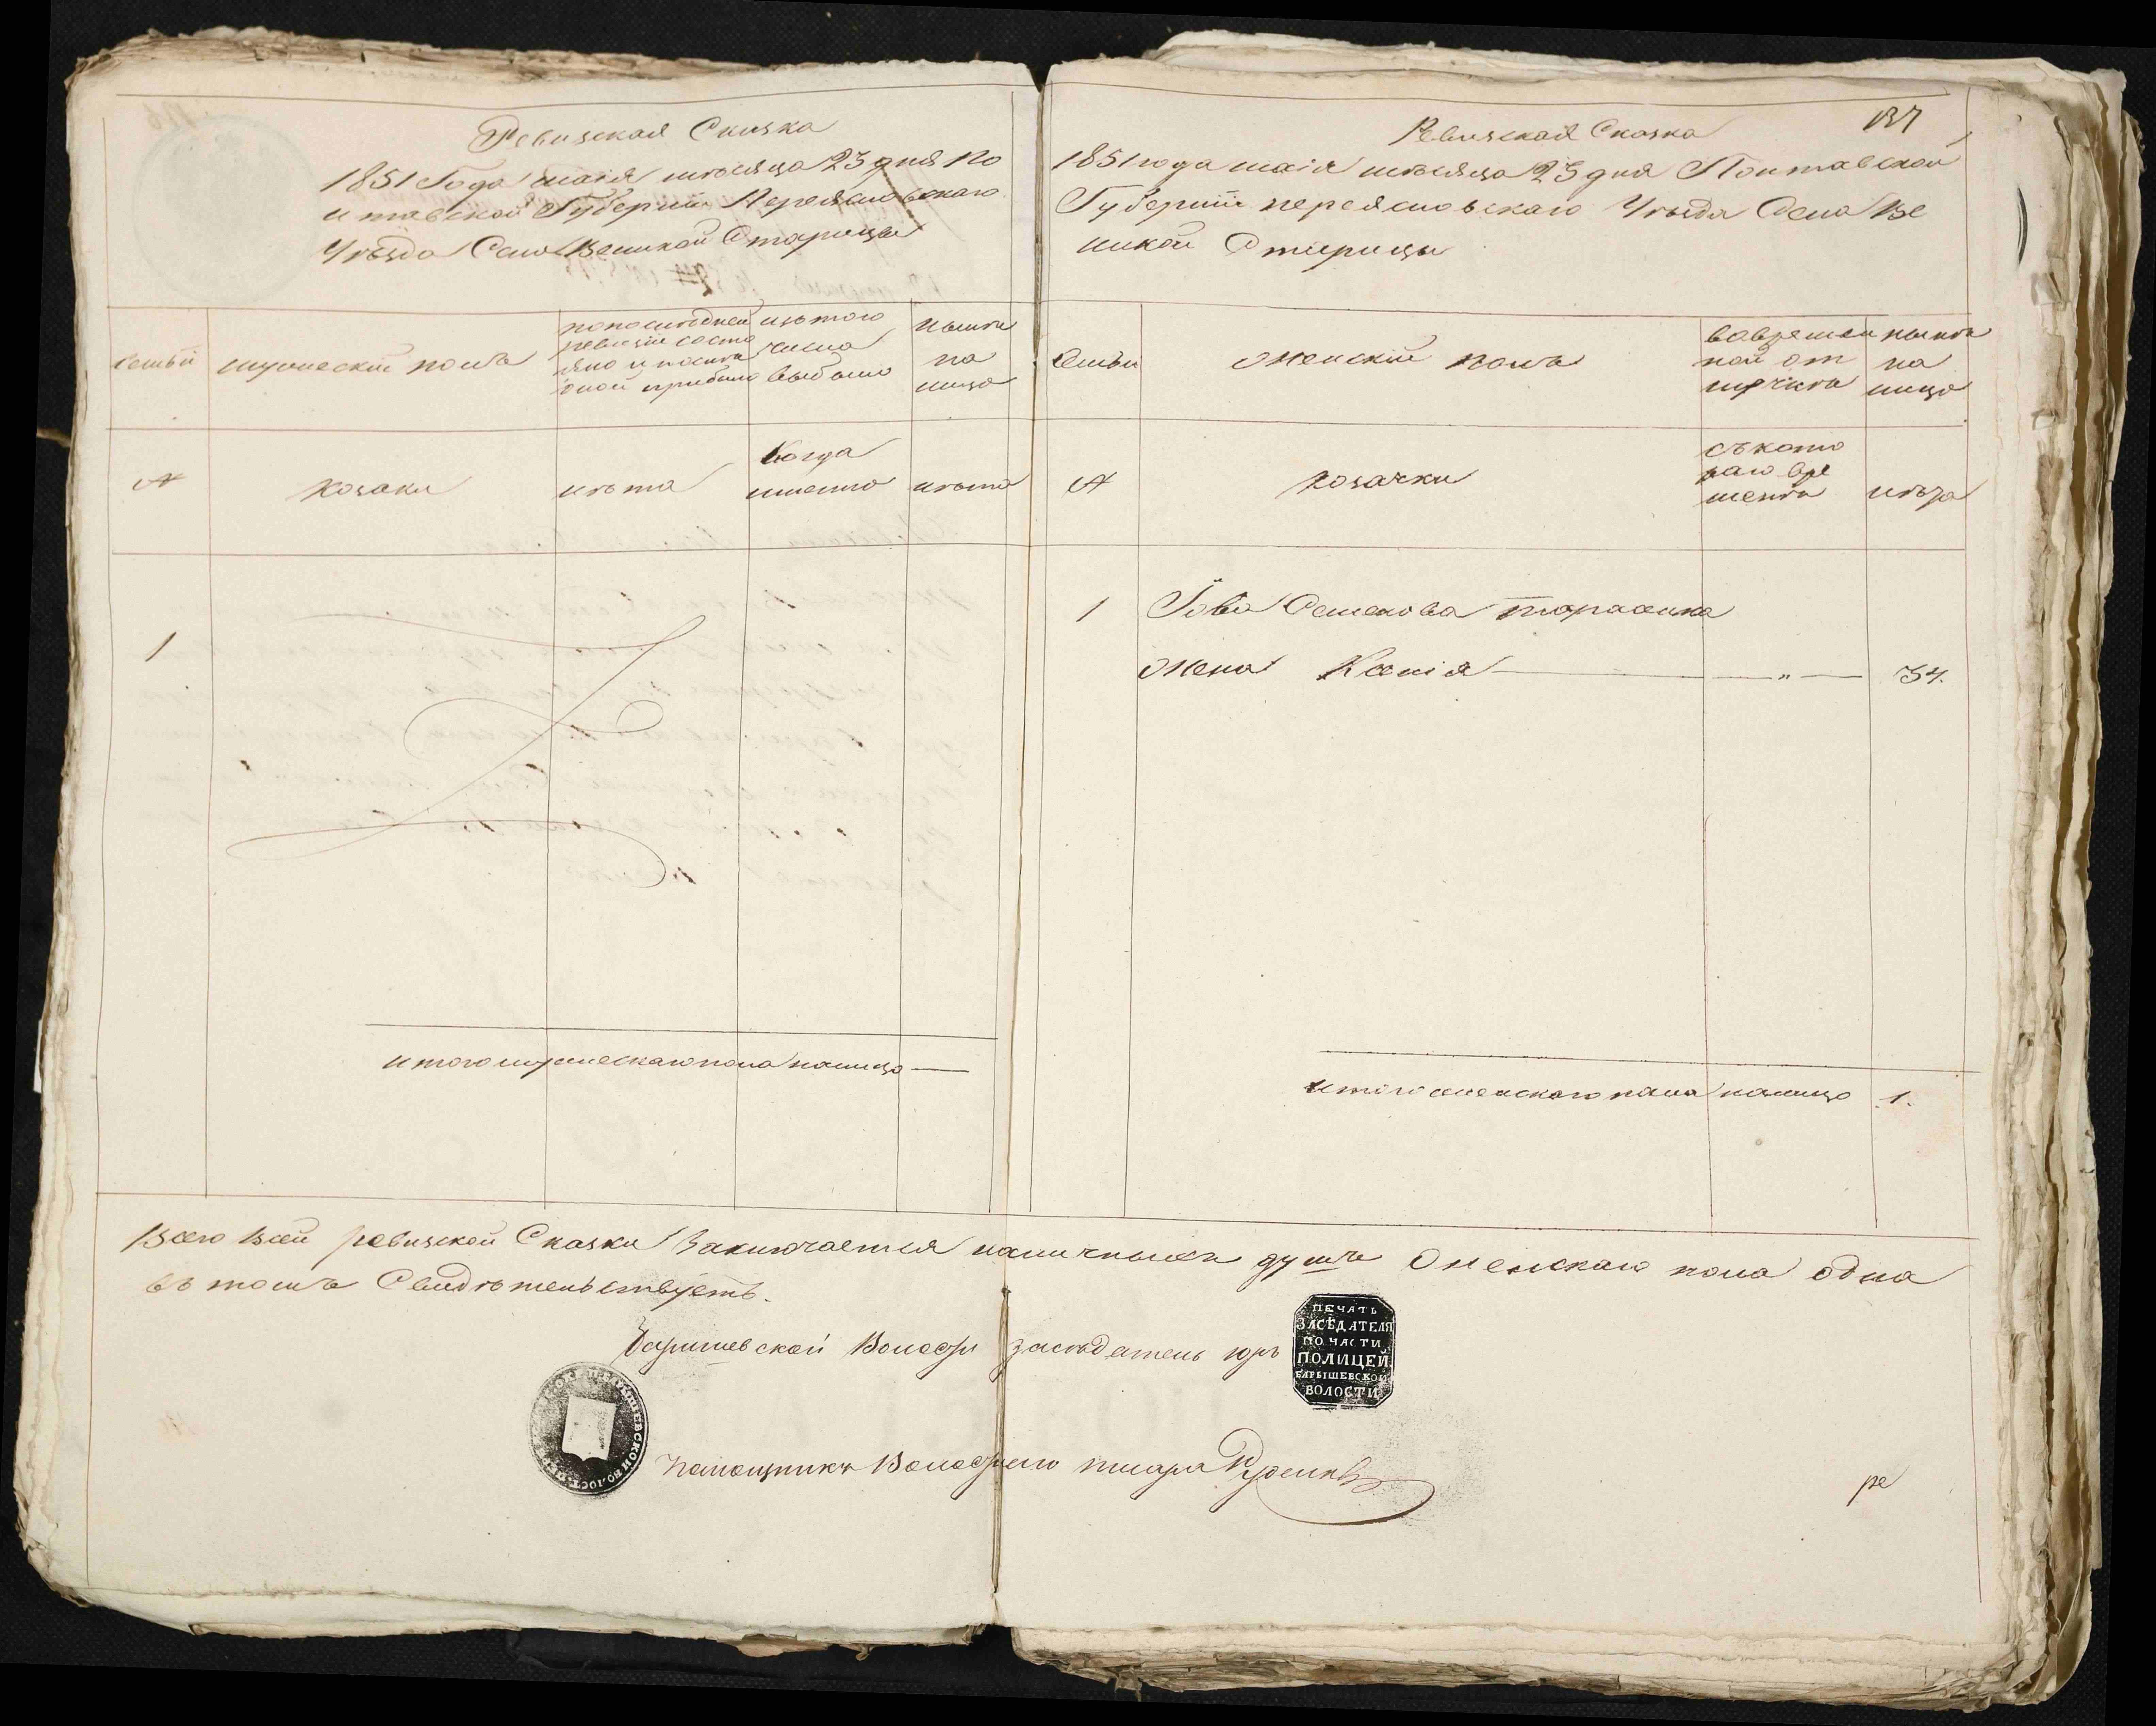 Ревизская Сказка
1851 Года маія мѣсяца 23 дня По
лтавской Губерніи Переясловскаго
Уѣзда Села Великой Старицы
семьи
мужескій полъ
по последней
ревизіи состо
яло и после
оной прибыло
изъ того
числа
выбыло
ныне
на
лицо
№
козаки
лѣта
Когда
именно
лѣта
1
итого мужескаго пола налицо —
137
Ревизская Сказка
1851 года маія мѣсяца 23 дня Полтавской
Губерніи переясловскаго Уѣзда Села Ве
ликой Старицы
Семьи
женскій полъ
вовремен
ной от
лучке
ныне
на
лицо
№
козачки
съ кото
раго вре
мени
лѣта
1 Іова Семенова тарасенка
жена Ксенія — „ — 54.
итого женскаго пола налицо 1.
Всего Всей ревизской Сказки Заключается наличныхъ душъ Женскаго пола одна
въ томъ Свидѣтельствуетъ.
Барышевской Волости заседатель юръ
ПЕЧАТЬ
ЗАСѢДАТЕЛЯ
ПО ЧАСТИ
ПОЛИЦЕЙ
БАРЫШЕВСКОЙ
ВОЛОСТИ
Помощникъ Волостнаго писаря Руденко
ре